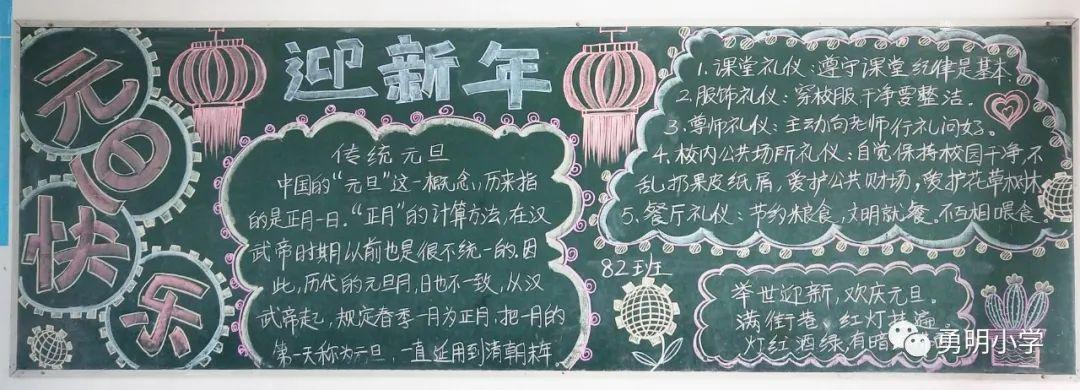 元旦
快
乐
迎新年
传统元旦
中国的“元旦”这一概念,历来指
的是正月一日。“正月”的计算方法,在汉
武帝时期以前也是很不统一的.因
此,历代的元旦月,日也不一致,从汉
武帝起,规定春季一月为正月,把一月的
第一天称为元旦,一直延用到清朝末年
1.课堂礼仪:遵守课堂纪律是基本.
2.服饰礼仪:穿校服干净要整洁。
3.尊师礼仪:主动向老师行礼问好。
4.校内公共场所礼仪:自觉保持校园干净,不
乱扔果皮纸屑,爱护公共财场,爱护花草树木
5.餐厅礼仪:节约粮食,文明就餐。不互相喂食.
82班
举世迎新,欢庆元旦。
满街巷、红灯
灯红酒绿有暗
勇明小学